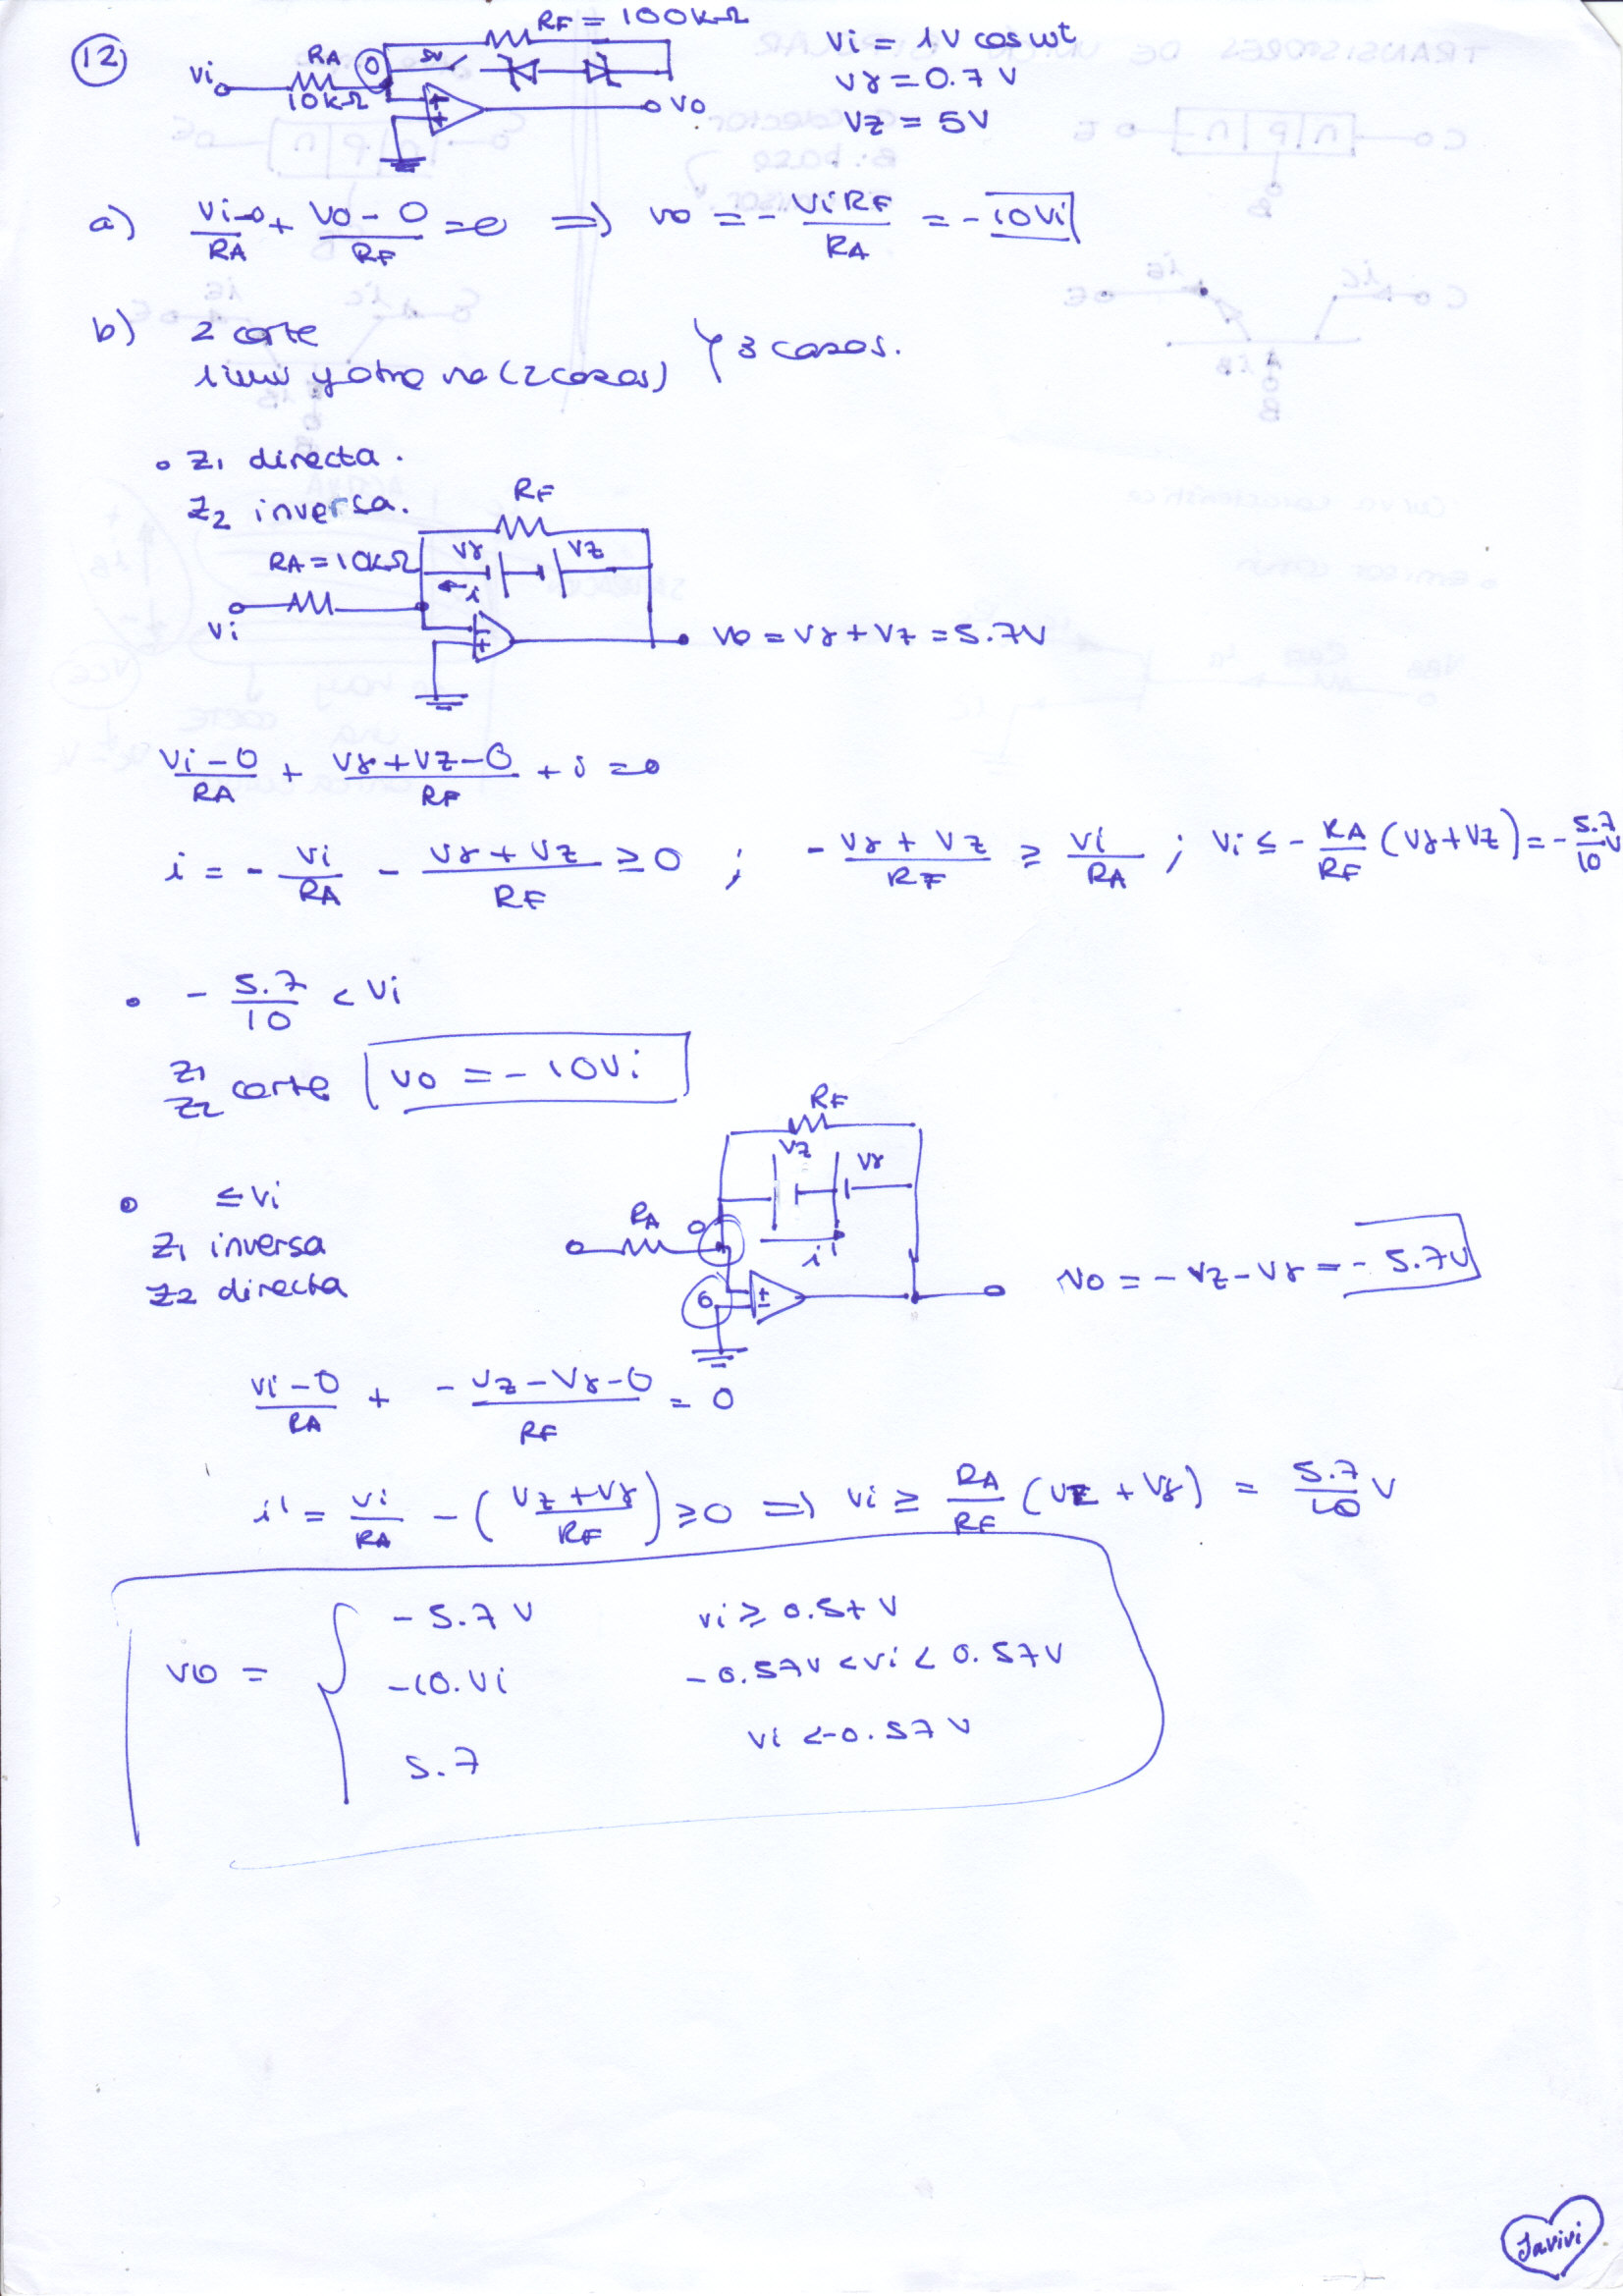 12
RF = 100kΩ
Vi = 1V cos wt
Vi RA 0 SW
10kΩ
Vo
Vγ = 0.7 V
VZ = 5V
a) Vi-0/RA + Vo-0/RF = 0 ⇒ Vo = - ViRF/RA = -10Vi
b) 2 corte
y otro no (2 casos) } 3 casos.
• Z1 directa.
Z2 inversa.
RF
RA = 10kΩ Vγ VZ
i
Vi
Vo = Vγ + VZ = 5.7V
Vi-0/RA + Vγ+VZ-0/RF + i = 0
i = - Vi/RA - Vγ+VZ/RF ≥ 0 ; - Vγ+VZ/RF ≥ Vi/RA ; Vi ≤ - RA/RF (Vγ+VZ) = - 5.7/10 V
• - 5.7/10 < Vi
Z1 Z2 corte Vo = - 10Vi
RF
VZ Vγ
• ≤ Vi
Z1 inversa
Z2 directa
RA 0
i'
0
Vo = - VZ - Vγ = - 5.7V
Vi-0/RA + -VZ-Vγ-0/RF = 0
i' = Vi/RA - (VZ+Vγ/RF) ≥ 0 ⇒ Vi ≥ RA/RF (VZ + Vγ) = 5.7/10 V
Vo = { - 5.7 V Vi ≥ 0.57 V
-10.Vi -0.57V < Vi < 0.57V
5.7 Vi < -0.57 V
Javivi